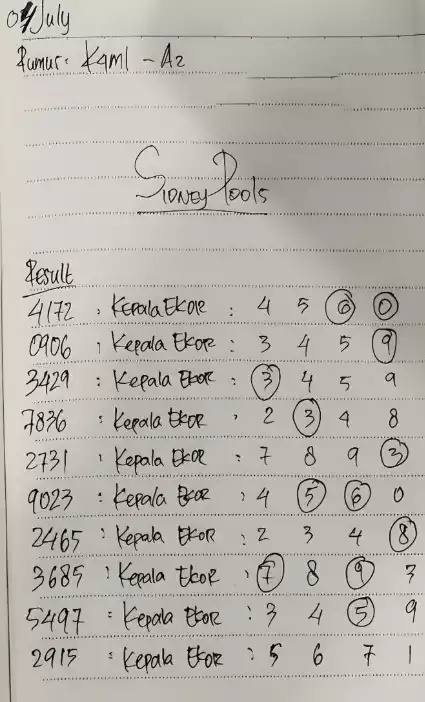 04 July
Rumus: K4m1 - A2
Sidney Pools
Result
4172 : Kepala Ekor : 4 5 6 0
0906 : Kepala Ekor : 3 4 5 9
3429 : Kepala Ekor : 3 4 5 9
7836 : Kepala Ekor : 2 3 4 8
2731 : Kepala Ekor : 7 8 9 3
9023 : Kepala Ekor : 4 5 6 0
2465 : Kepala Ekor : 2 3 4 8
3685 : Kepala Ekor : 7 8 9 3
5497 : Kepala Ekor : 3 4 5 9
2915 : Kepala Ekor : 5 6 7 1